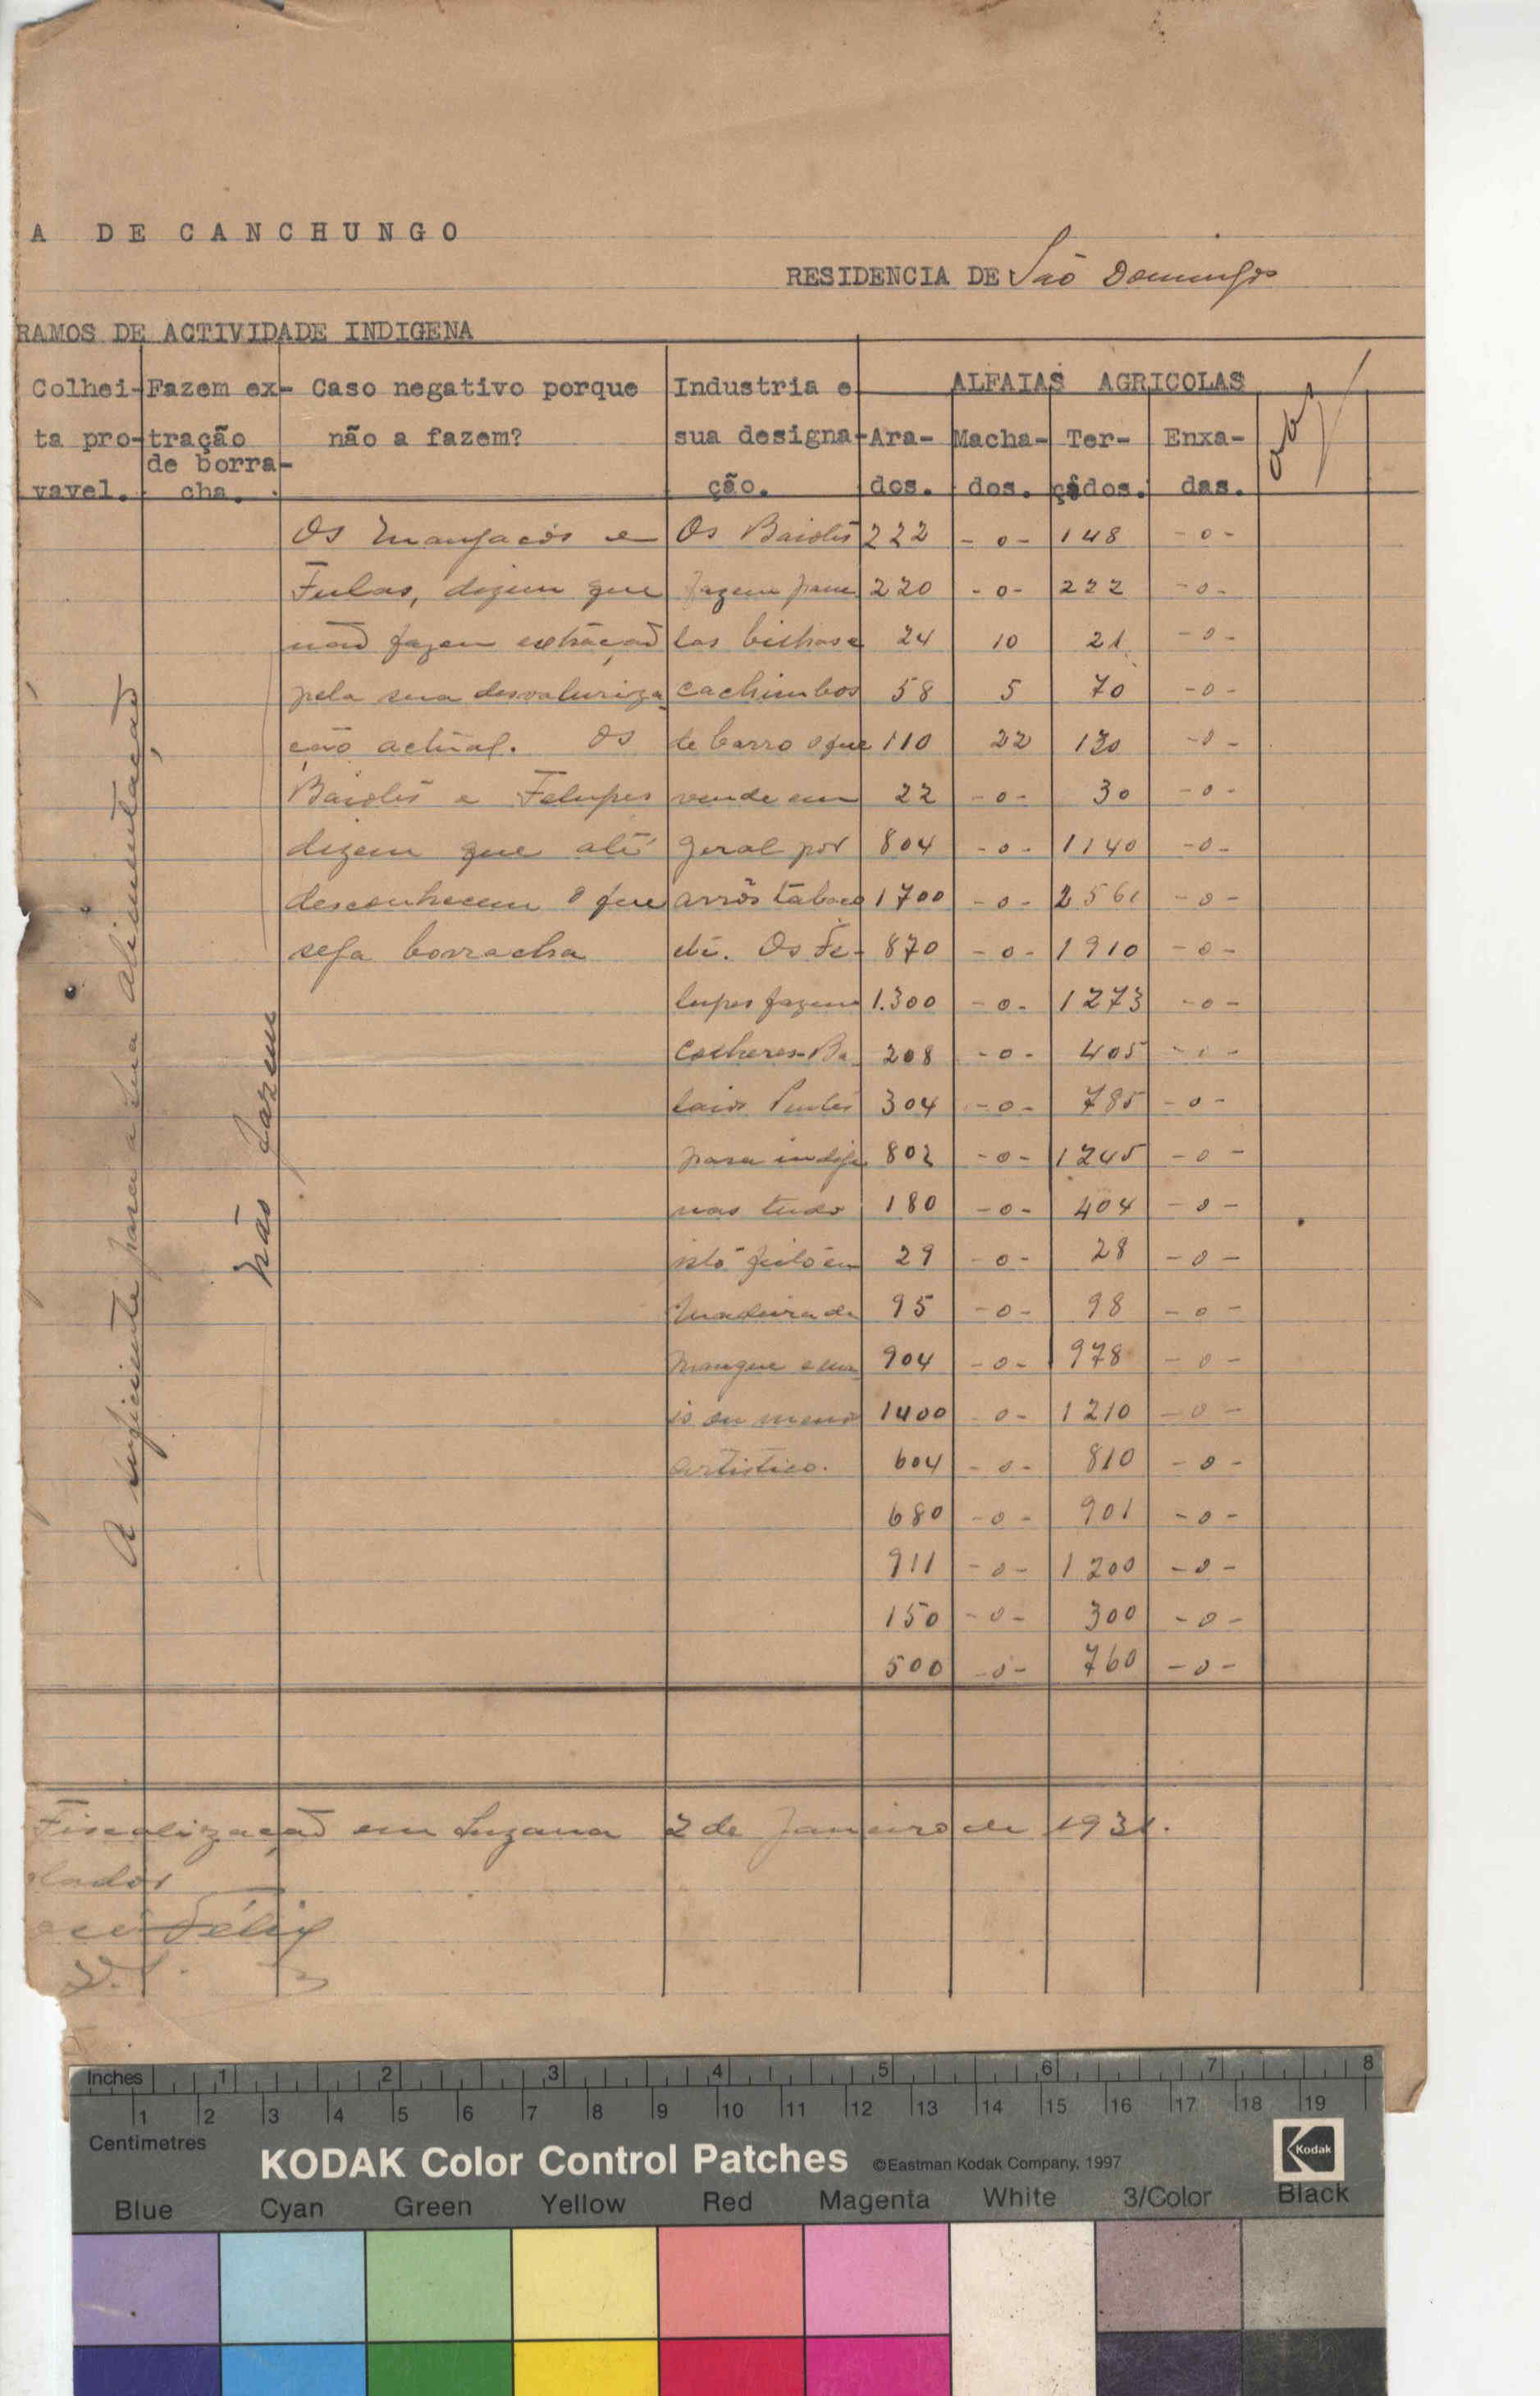 A DE CANCHUNGO
RESIDENCIA DE São Domingos
RAMOS DE ACTIVIDADE INDIGENA
Colhei- Fazem ex- Caso negativo porque Industria e ALFAIAS AGRICOLAS
ta pro- tração não a fazem? sua designa- Ara- Macha- Ter- Enxa-
de borra-
vavel. cha. ção. dos. dos. çados. das.
Os Manjacos e Os Baiotes 222 -0- 148 -0-
Fulas, dizem que fazem pane 220 -0- 222 -0-
não fazem extração las bilhas e 24 10 21 -0-
pela sua desvaloriza cachimbos 58 5 70 -0-
ção actual. Os de barro o que 110 22 130 -0-
Baiotes e Felupes vende em 22 -0- 30 -0-
dizem que até geral por 804 -0- 1140 -0-
desconhecem o que arrôs tabaco 1700 -0- 2561 -0-
seja borracha etc. Os Fe- 870 -0- 1910 -0-
lupes fazem 1.300 -0- 1273 -0-
Colheres-Ba 208 -0- 405
laios Pentes 304 -0- 785 -0-
para indige 802 -0- 1245 -0-
nas tudo 180 -0- 404 -0-
isto feito em 29 -0- 28 -0-
Madeira de 95 -0- 98 -0-
mangue e ma 904 -0- 978 -0-
is ou menos 1400 -0- 1210 -0-
artistico. 604 -0- 810 -0-
680 -0- 901 -0-
911 -0- 1200 -0-
150 -0- 300 -0-
500 -0- 760 -0-
A suficiente para a sua alimentação
Não fazem
Fiscalização em Suzana 2 de Janeiro de 1931.
lador
Félix
Inches 1 2 3 4 5 6 7 8
1 2 3 4 5 6 7 8 9 10 11 12 13 14 15 16 17 18 19
Centimetres
KODAK Color Control Patches ©Eastman Kodak Company, 1997 Kodak
Blue Cyan Green Yellow Red Magenta White 3/Color Black